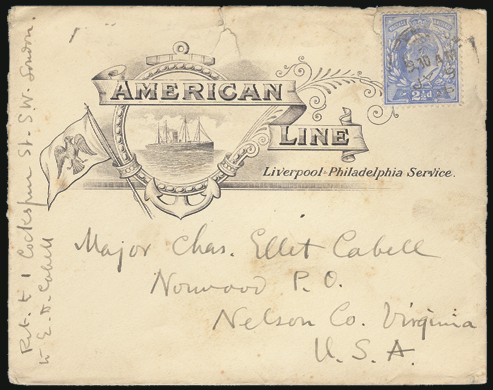 AMERICAN
LINE
Liverpool-Philadelphia Service.
2½d
10 A
Major Chas. Ellet Cabell
Norwood P.O.
Nelson Co. Virginia
U.S.A.
Ret. to 1 Cockspur St. S.W. London.
to E. A. Cabell